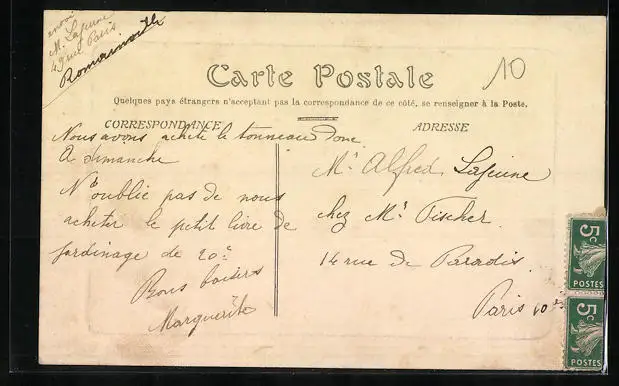 envoi
M. Lajeune
49 rue Paris
Romainville
10
Carte Postale
Quelques pays étrangers n'acceptant pas la correspondance de ce côté, se renseigner à la Poste.
CORRESPONDANCE
Nous avons acheté le tonneau donc
A dimanche
N'oublie pas de nous
acheter le petit livre de
jardinage de 20c
Bons baisers
Marguerite
ADRESSE
Mr Alfred Lajeune
chez Mr Fischer
14 rue de Paradis
Paris 10e
5c
POSTES
5c
POSTES